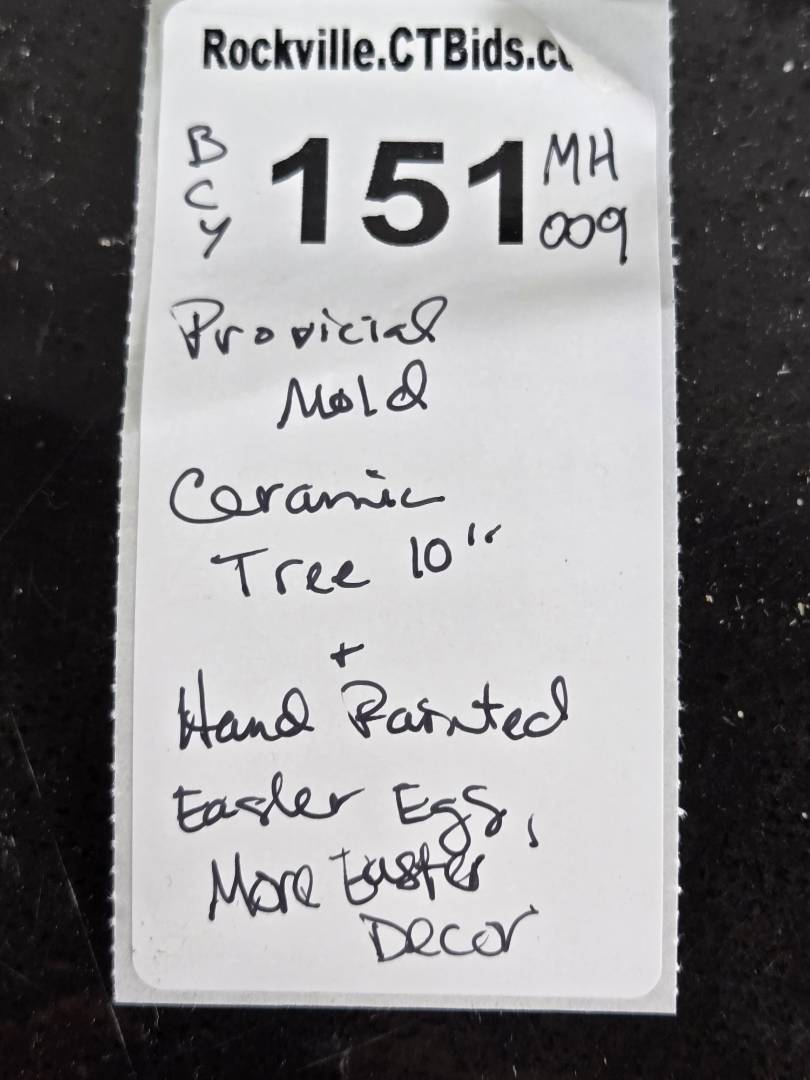 Rockville.CTBids.c
B C Y 151 MH 009
Provicial
Mold
Ceramic
Tree 10"
+
Hand Painted
Easter Egs,
More Easter
Decor